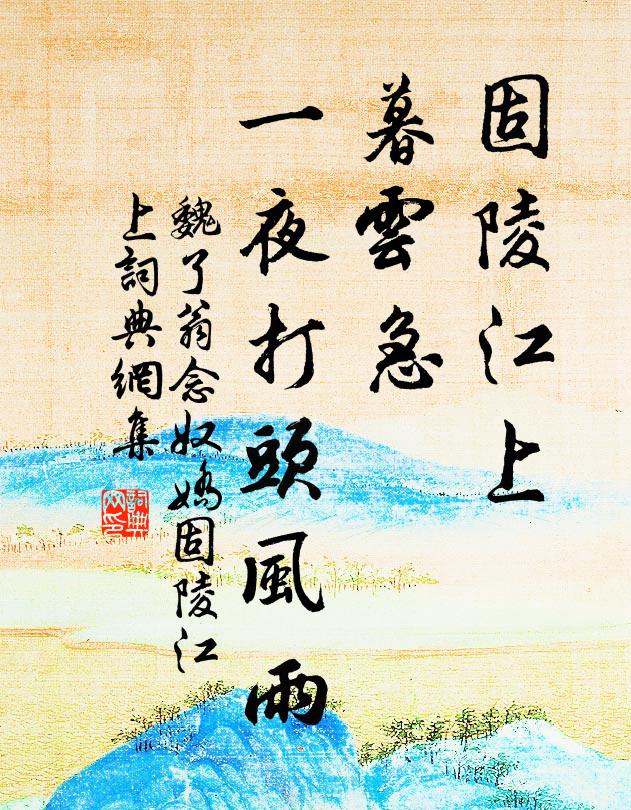 固陵江上
暮雲急
一夜打頭風雨
魏了翁念奴嬌固陵江
上詞典網集
詞典